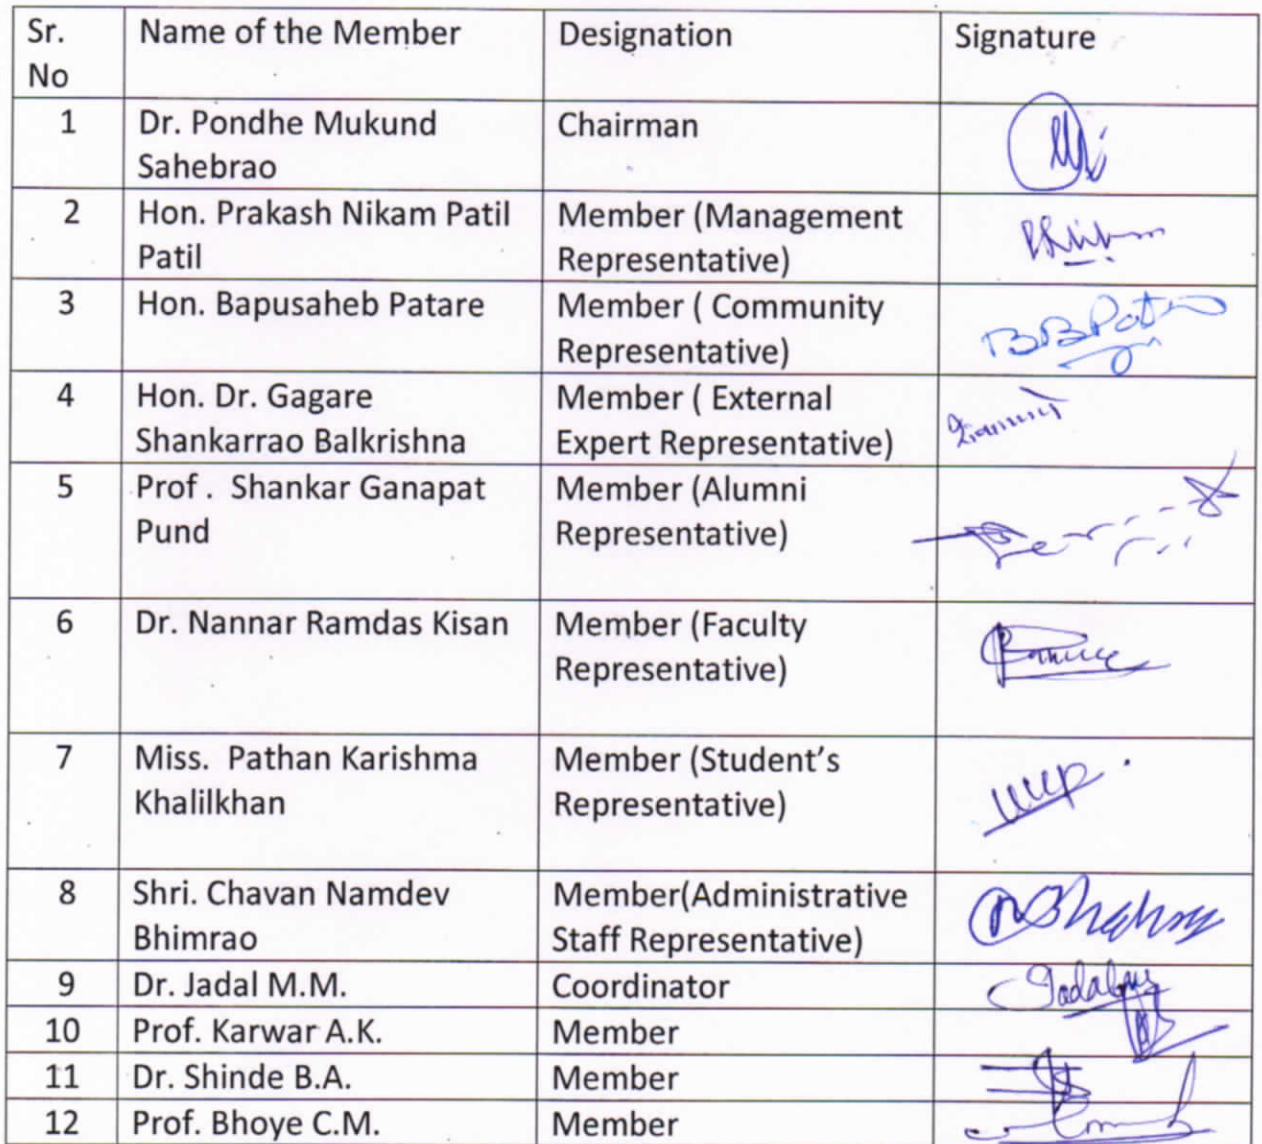 Sr. Name of the Member Designation Signature
No
1 Dr. Pondhe Mukund Chairman
Sahebrao
2 Hon. Prakash Nikam Patil Member (Management
Patil Representative)
3 Hon. Bapusaheb Patare Member ( Community
Representative)
4 Hon. Dr. Gagare Member ( External
Shankarrao Balkrishna Expert Representative)
5 Prof . Shankar Ganapat Member (Alumni
Pund Representative)
6 Dr. Nannar Ramdas Kisan Member (Faculty
Representative)
7 Miss. Pathan Karishma Member (Student’s
Khalilkhan Representative)
8 Shri. Chavan Namdev Member(Administrative
Bhimrao Staff Representative)
9 Dr. Jadal M.M. Coordinator
10 Prof. Karwar A.K. Member
11 Dr. Shinde B.A. Member
12 Prof. Bhoye C.M. Member